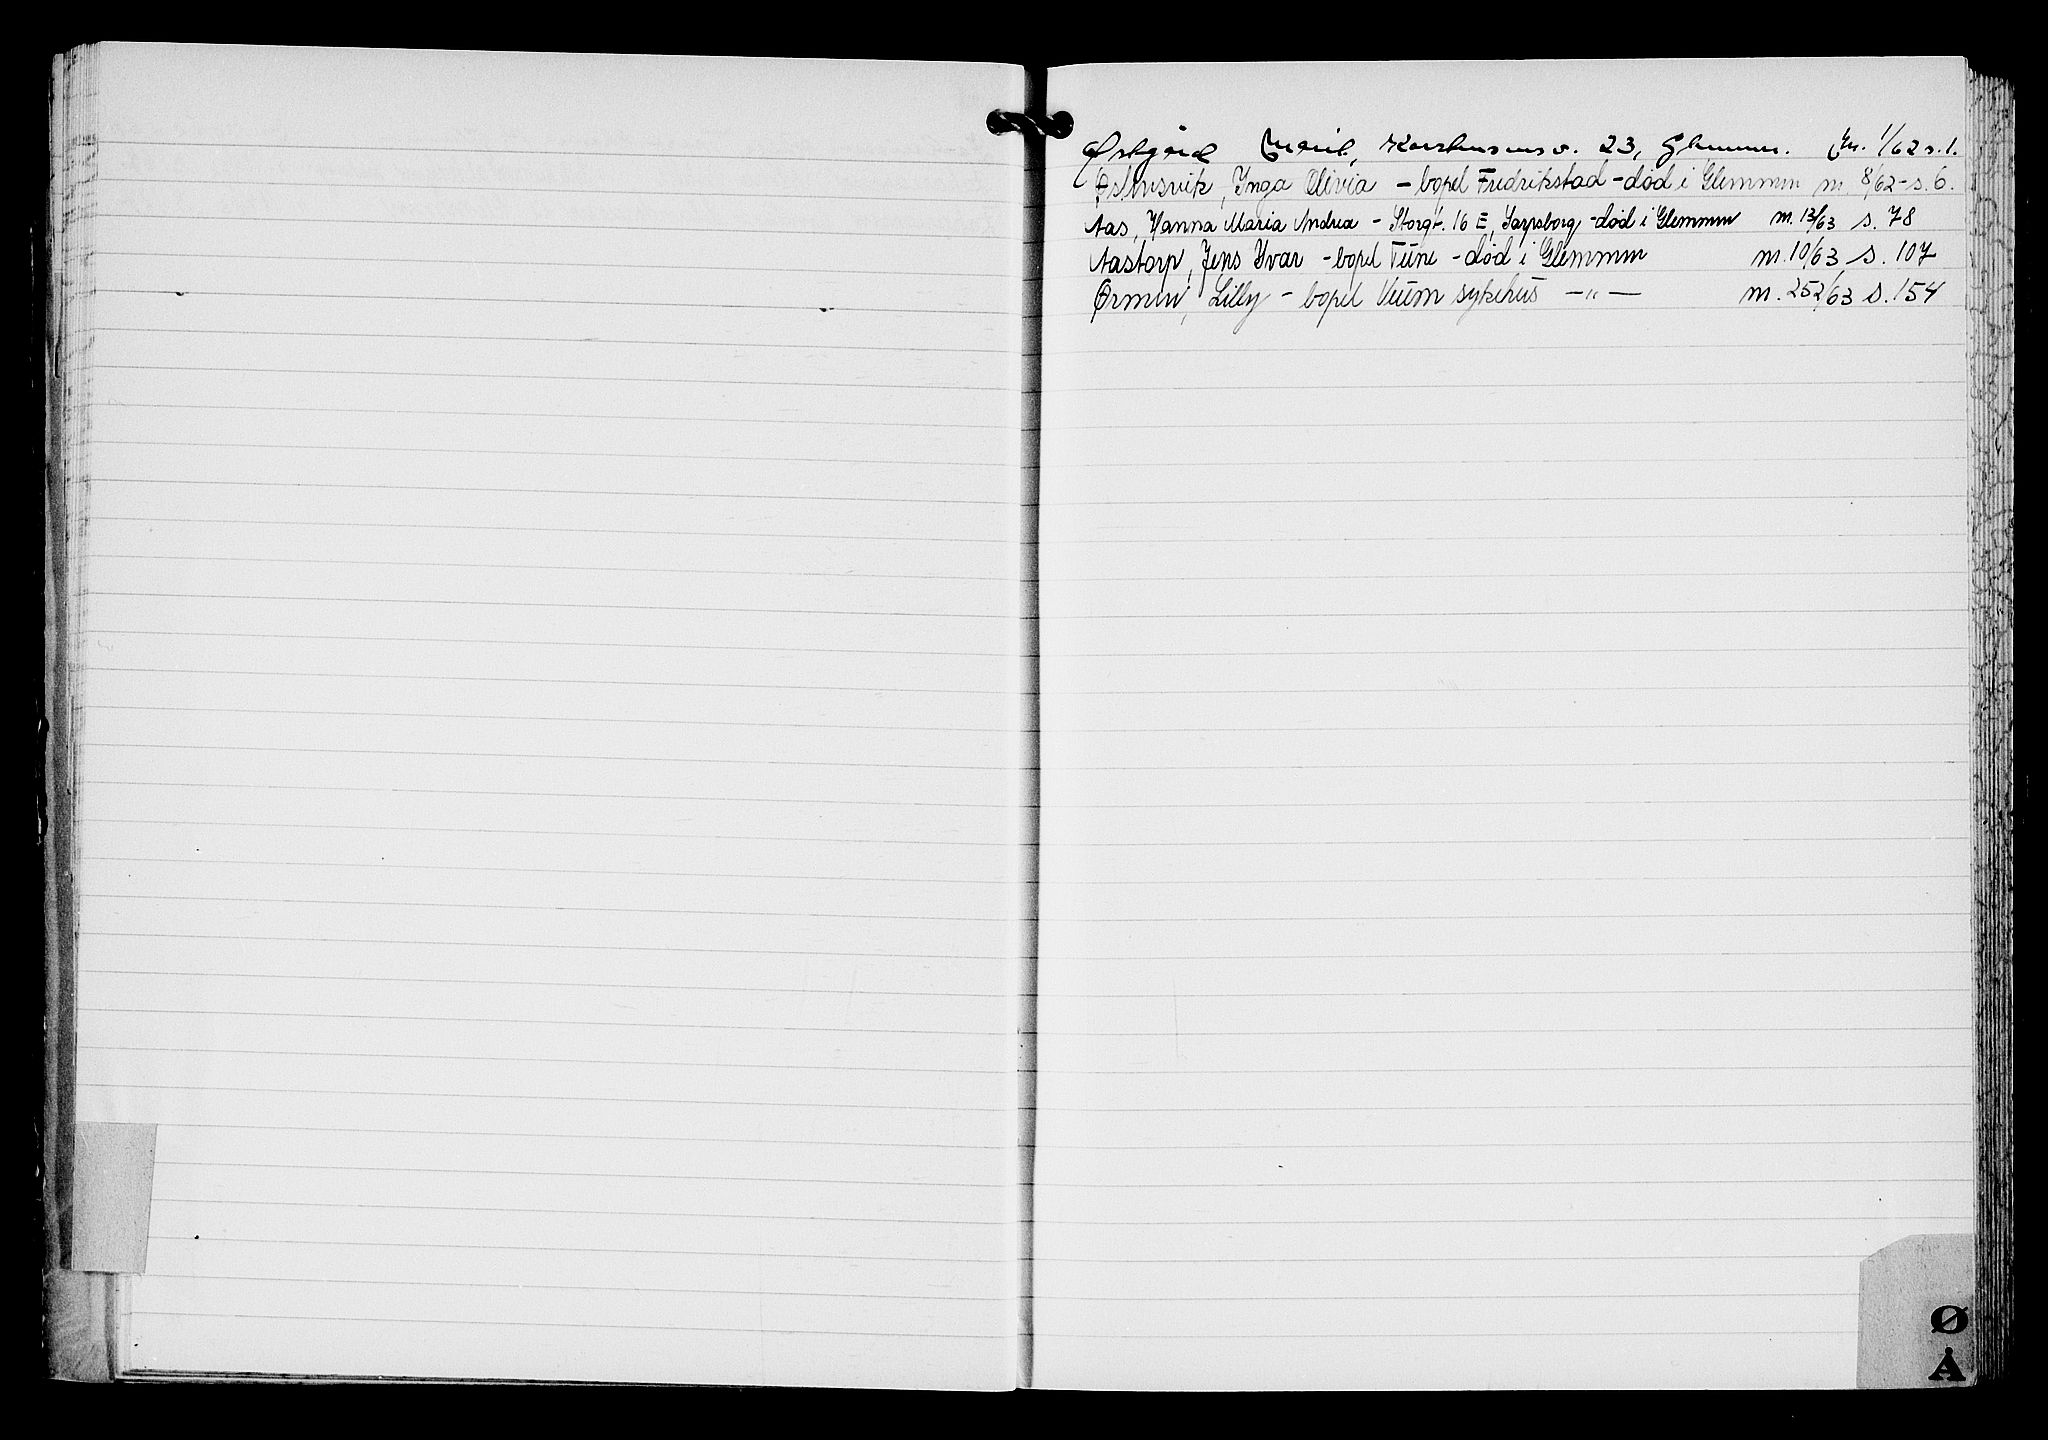 Østgård Marit, 23, Glemmen. m. 1/62 s. 1.
Østensvik, Inga Olivia - bopel Fredrikstad - død i Glemmen m. 8/62 - s. 6.
Aas, Hanna Maria Andrea - Storgt. 16 E, Sarpsborg - død i Glemmen m. 13/63 s. 78
Aastorp, Jens Ivar - bopel Tune - død i Glemmen m. 10/63 s. 107
Ørmen, Lilly - bopel Veum sykehus - " - m. 252/63 s. 154
Ø
Å